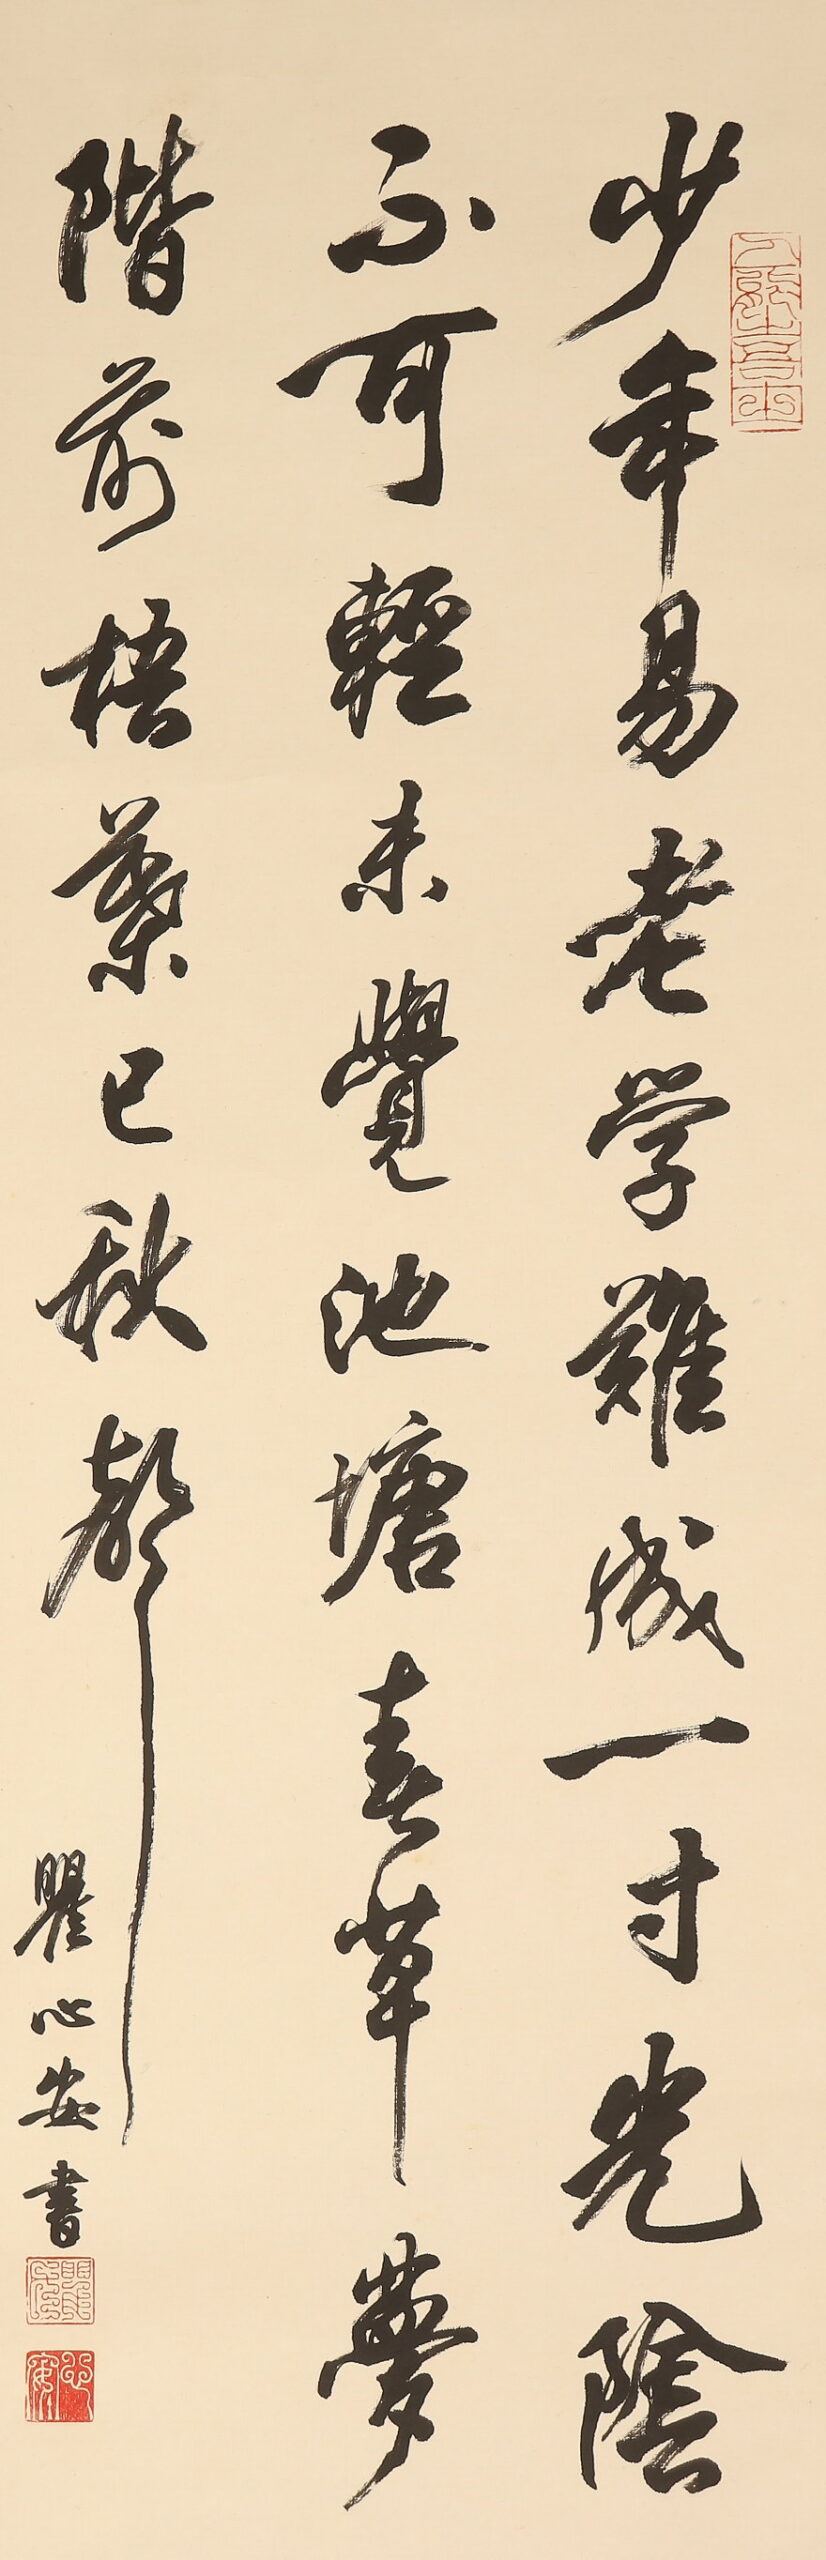 少年易老学難成一寸光陰
不可輕未覺池塘春草夢
階前梧葉已秋聲
瞿心安書